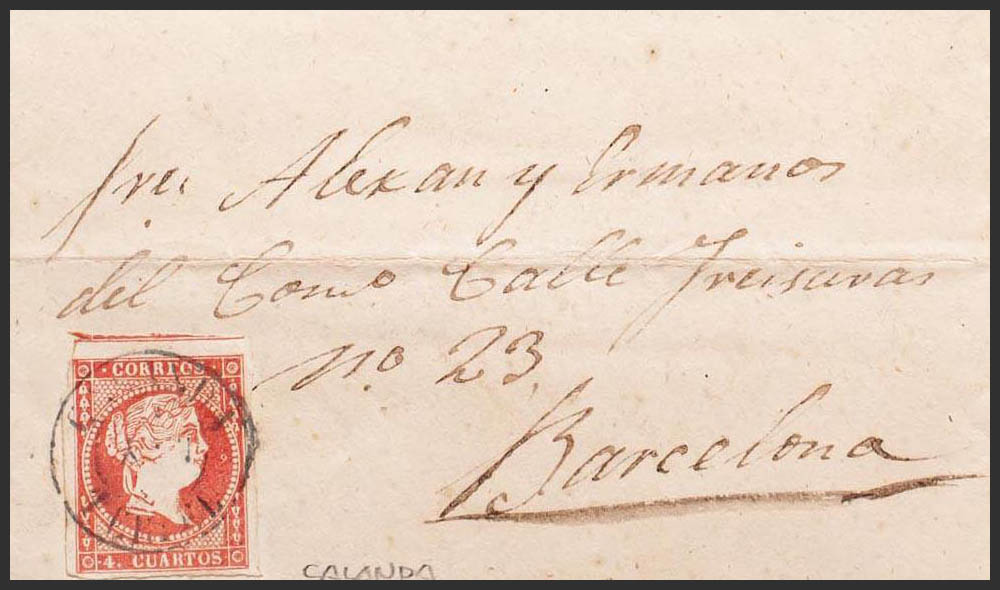 Alexan y Ermanos
del Como Calle Freisuras
no 23
Barcelona
CORREOS
4. CUARTOS
CALANDA